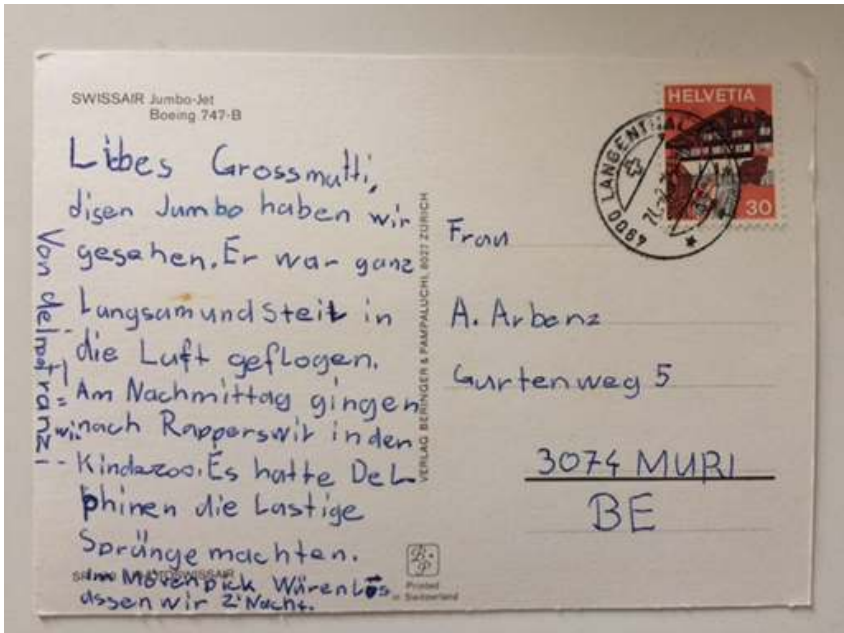 SWISSAIR Jumbo-Jet
Boeing 747-B
Libes Grossmutti,
disen Jumbo haben wir
gesehen. Er war ganz
Langsam und Steil in
die Luft geflogen.
Am Nachmittag gingen
wir nach Rapperswil in den
Kinderzoo. Es hatte Del-
phinen die Lustige
Sprünge machten.
Im Mövenpick Würenlos
assen wir z'Nacht.
Von
VERLAG BERINGER & PAMPALUCHI, 8027 ZÜRICH
HELVETIA
30
4900 LANGENTHAL
Frau
A. Arbenz
Gurtenweg 5
3074 MURI
BE
B+P
Printed
in Switzerland